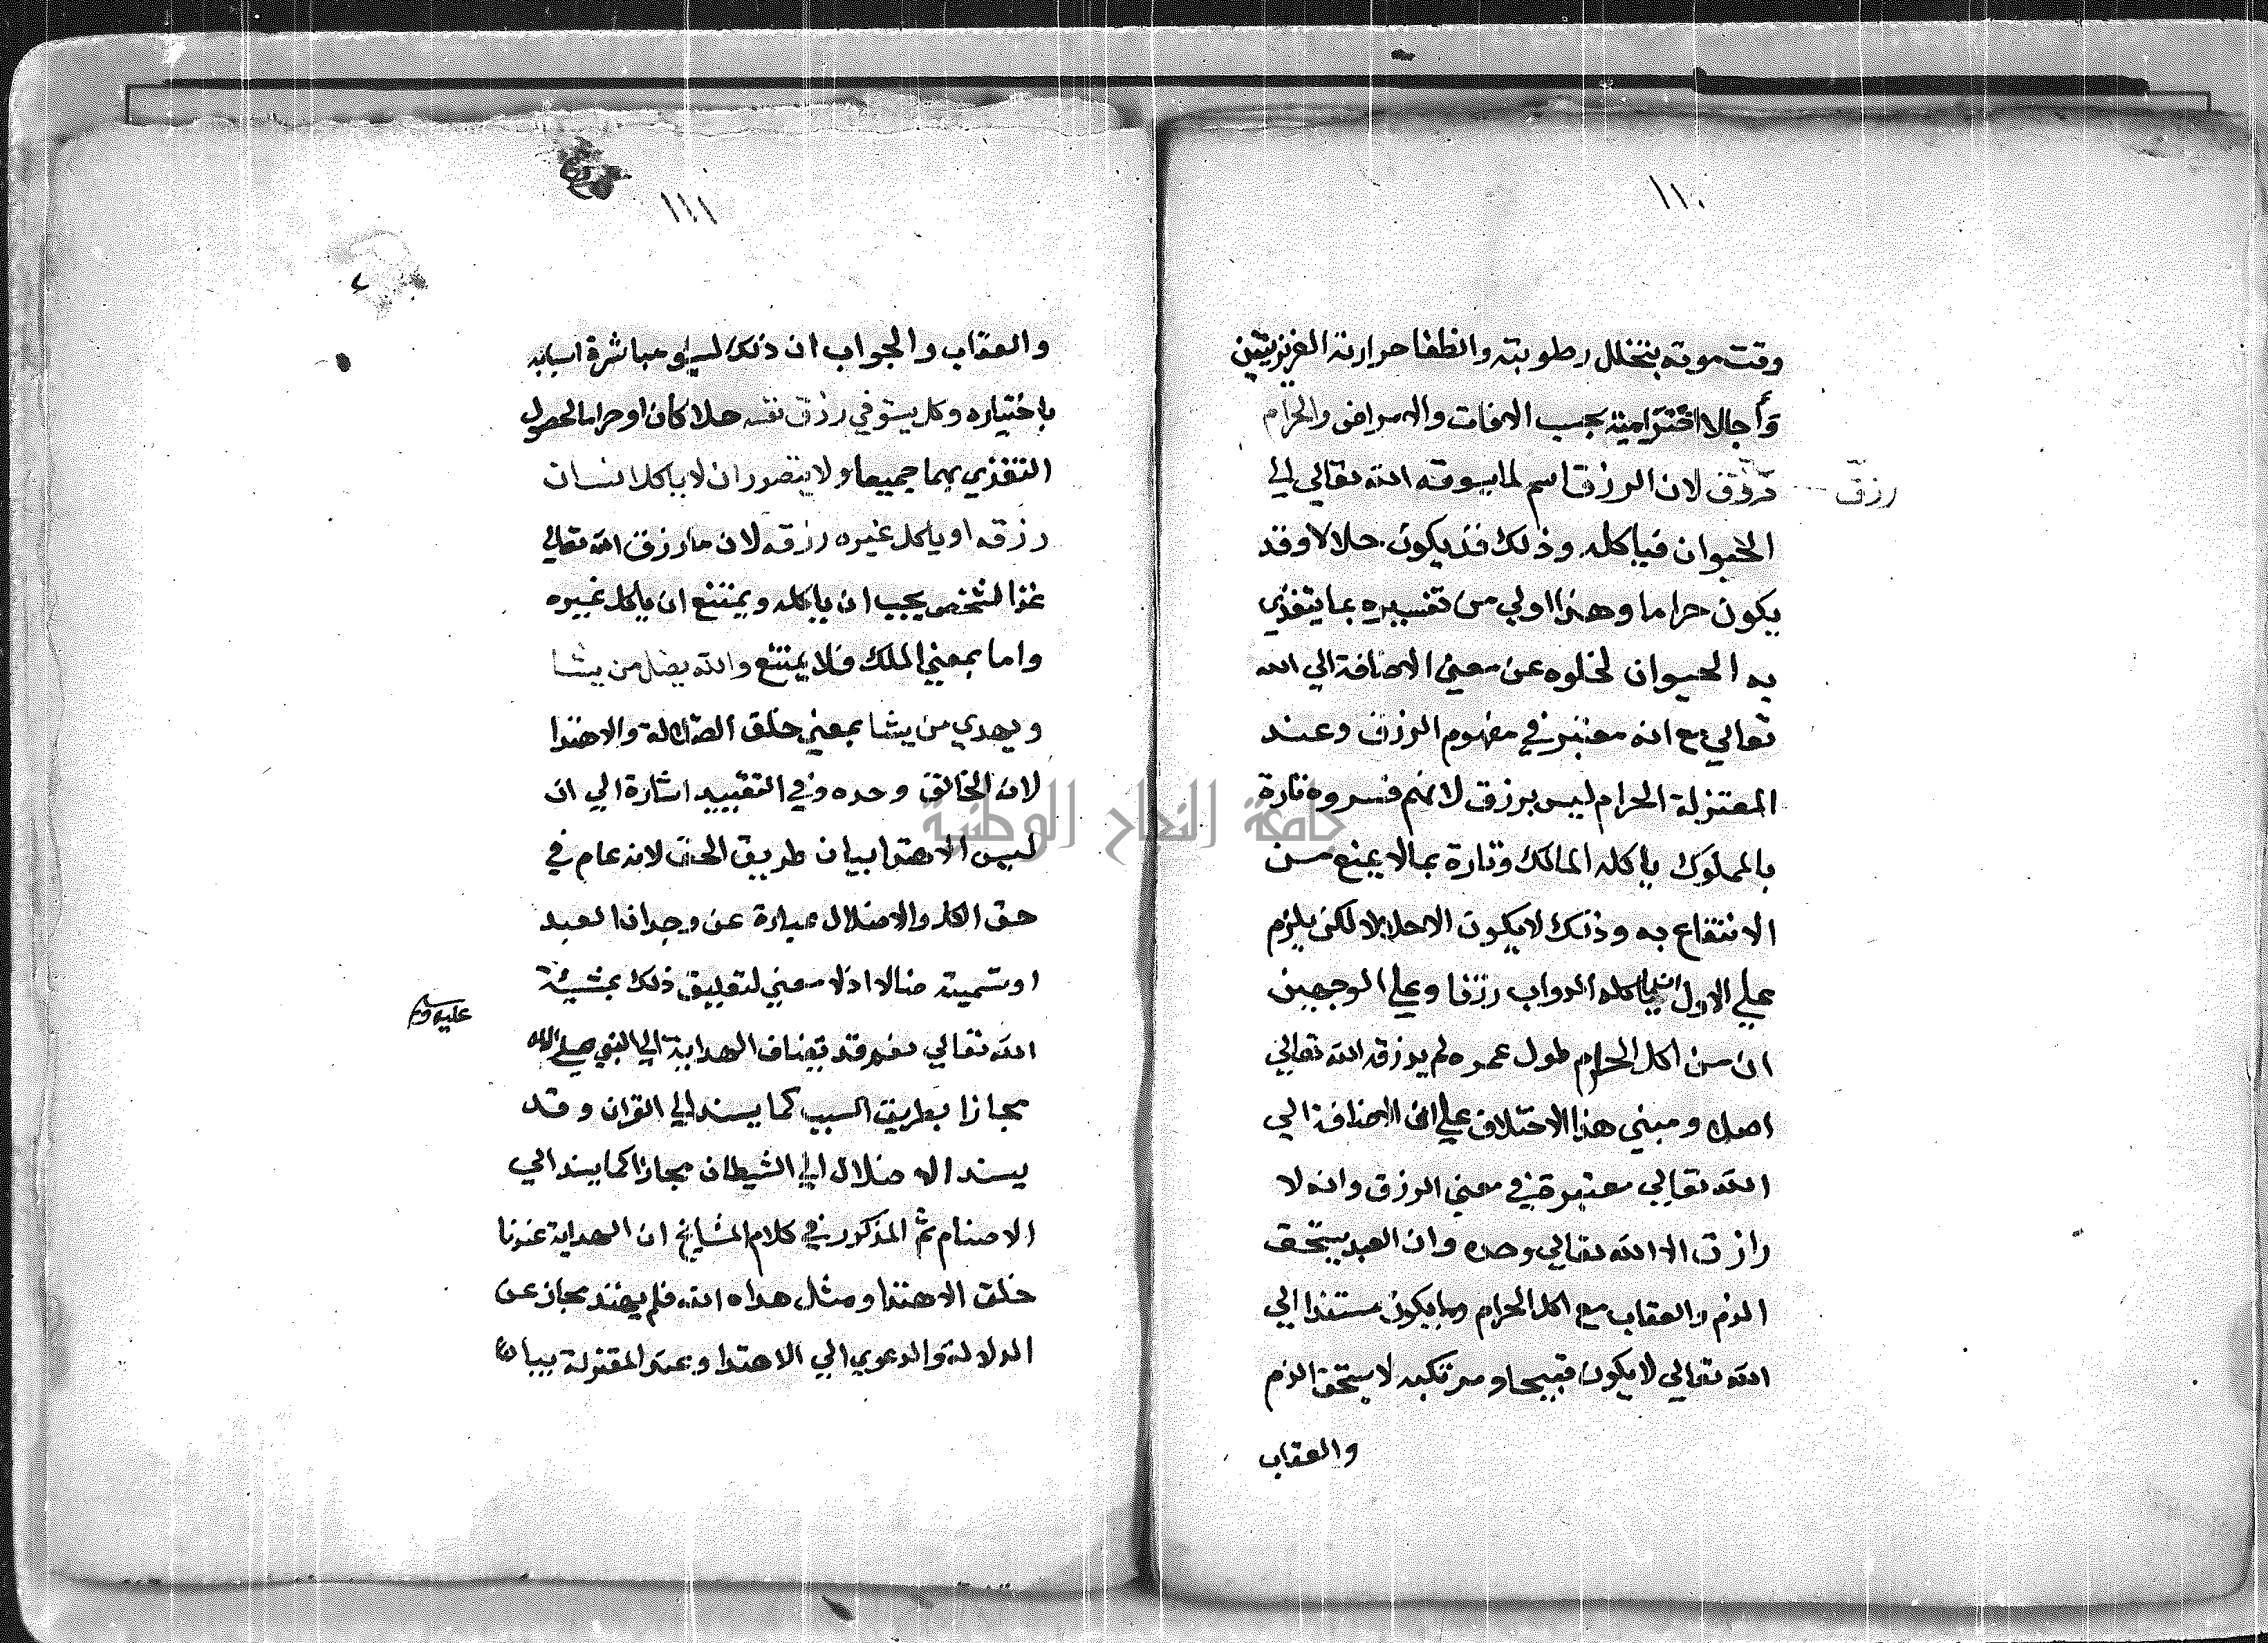 ١١٠
وقت موته بتخلل رطوبته وانطفا حرارته الغريزيتين
وأجالا اخترامية بحسب الافات والامراض والحرام
رزق لان الرزق اسم لما يسوقه الله تعالي الي
رزق
الحيوان فياكله وذلك قد يكون حلالا وقد
يكون حراما وهذا اولي من تفسيره بما يتغذي
به الحيوان لخلوه عن معني الاضافة الي الله
تعالي مع انه معتبر في مفهوم الرزق وعند
المعتزلة الحرام ليس برزق لانهم فسروه تارة
بالمملوك ياكله المالك وتارة بما لا يمنع من
الانتفاع به وذلك لا يكون الا حلالا لكن يلزم
علي الاول ان ياكله الدواب رزقا وعلي الوجهين
ان من اكل الحرام طول عمره لم يرزقه الله تعالي
اصلا ومبني هذا الاختلاف علي ان الاضافة الي
الله تعالي معتبرة في معني الرزق وانه لا
رازق الا الله تعالي وحده وان العبد يستحق
الذم والعقاب مع اكل الحرام وما يكون مستندا الي
الله تعالي لا يكون قبيحا ومرتكبه لا يستحق الذم
والعقاب
١١١
والعقاب والجواب ان ذلك لسوء مباشرة اسبابه
باختياره وكل يستوفي رزق نفسه حلالا كان او حراما لحصول
التغذي بهما جميعا ولا يتصور ان لا ياكل انسان
رزقه او ياكل غيره رزقه لان ما رزق الله تعالي
غذا لشخص يجب ان ياكله ويمتنع ان ياكل غيره
واما بمعني الملك فلا يمتنع والله يضل من يشا
ويهدي من يشا بمعني خلق الضلالة والاهتدا
لان الخالق وحده وفي التقييد اشارة الي ان
ليس الاهتدا بيان طريق الحق لانه عام في
حق الكل والاضلال عبارة عن وجدان العبد
او تسميته ضالا اذ لا معني لتعليق ذلك بمشيئة
الله تعالي نعم قد تضاف الهداية الي النبي صلي الله
عليه وسلم
مجازا بطريق السبب كما يسند الي القران وقد
يسند الاضلال الي الشيطان مجازا كما يسند الي
الاصنام ثم المذكور في كلام المشايخ ان الهداية عندنا
خلق الاهتدا ومثل هداه الله فلم يهتد مجاز عن
الدلالة والدعوي الي الاهتدا وعند المعتزلة بيان
جامعة النجاح الوطنية